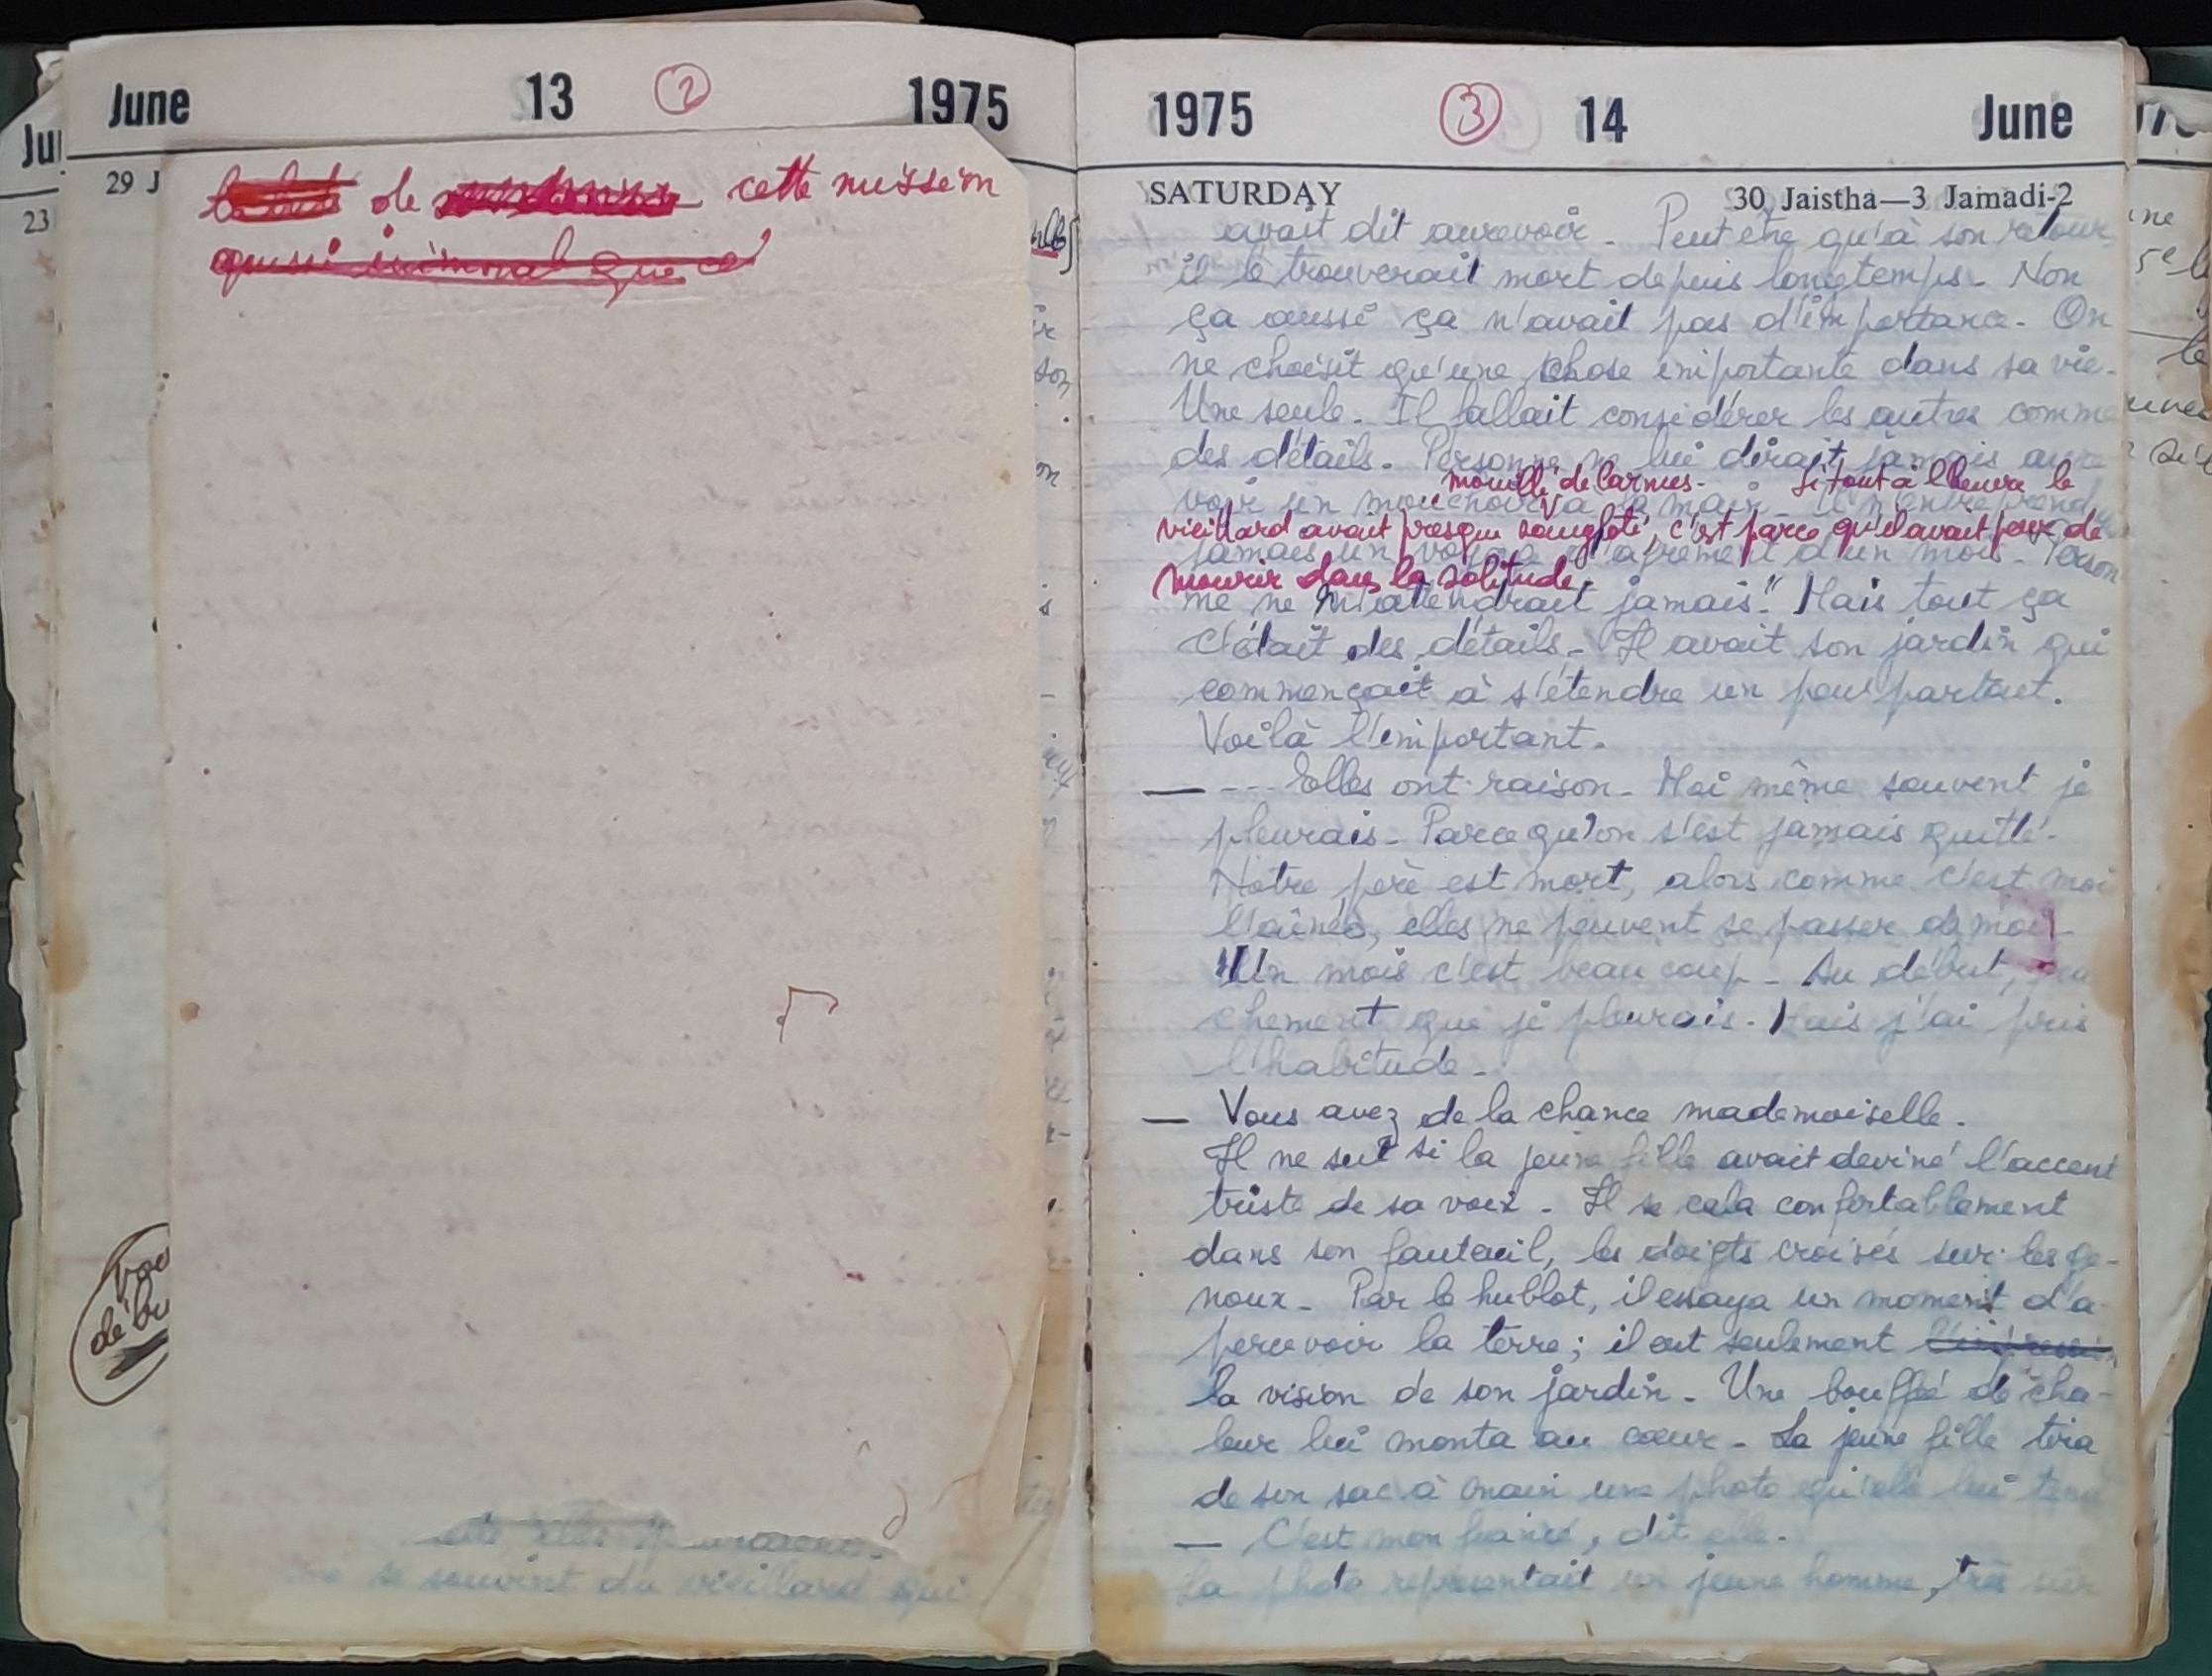 June 13 2 1975
29 J
de cette mission
aussi inimoral que ce
se souvint du vieillard qui
1975 3 14 June
SATURDAY 30 Jaistha—3 Jamadi-2
avait dit aurevoir. Peut être qu'à son retour
il le trouverait mort depuis longtemps. Non
ça aussi ça n'avait pas d'importance. On
ne choisit qu'une chose importante dans sa vie.
Une seule. Il fallait considérer les autres comme
des détails. Personne ne lui dirait jamais aure
mouillé de larmes. Si tout à l'heure le
voir un mouchoir à la main. Il n'entreprend
vieillard avait presque sangloté, c'est parce qu'il avait peur de
jamais un voyage d'agrément d'un mois. Person
mourir dans la solitude.
ne ne m'attendrait jamais." Mais tout ça
c'était des détails. Il avait son jardin qui
commençait à s'étendre un peu partout.
Voilà l'important.
— --- Elles ont raison. Moi même souvent je
pleurais. Parce qu'on s'est jamais quitté.
Notre père est mort, alors comme c'est moi
l'aînée, elles ne peuvent se passer de moi.
Un mois c'est beaucoup. Au début,
chement que je pleurais. Mais j'ai pris
l'habitude.
— Vous avez de la chance mademoiselle.
Il ne sut si la jeune fille avait deviné l'accent
triste de sa voix. Il se cala confortablement
dans son fauteuil, les doigts croisés sur les ge-
noux. Par le hublot, il essaya un moment d'a-
percevoir la terre; il eut seulement
la vision de son jardin. Une bouffée de cha-
leur lui monta au cœur. La jeune fille tira
de son sac à main une photo qu'elle lui tend
— C'est mon fiancé, dit elle.
La photo représentait un jeune homme, très sûr